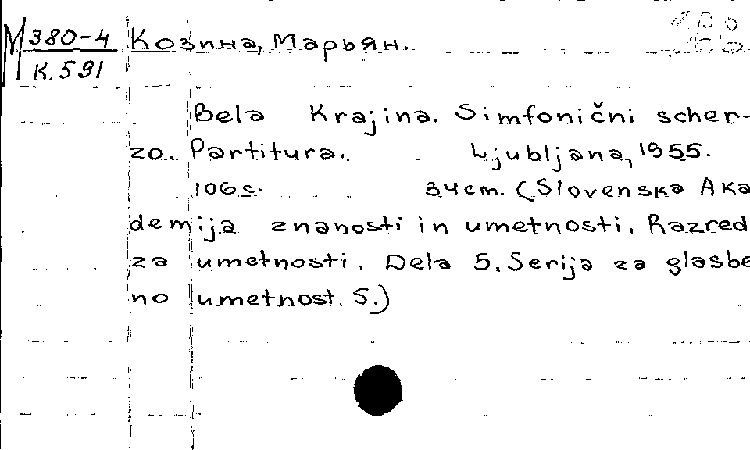 М 380-4 Козина, Марьян.
К.591
Bela Krajina. Simfonični scher-
zo. Partitura. Ljubljana, 1955.
106 s. 34 cm. (Slovenska Aka
demija znanosti in umetnosti. Razred
za umetnosti. Dela 5. Serija za glasbe
no umetnost. 5.)